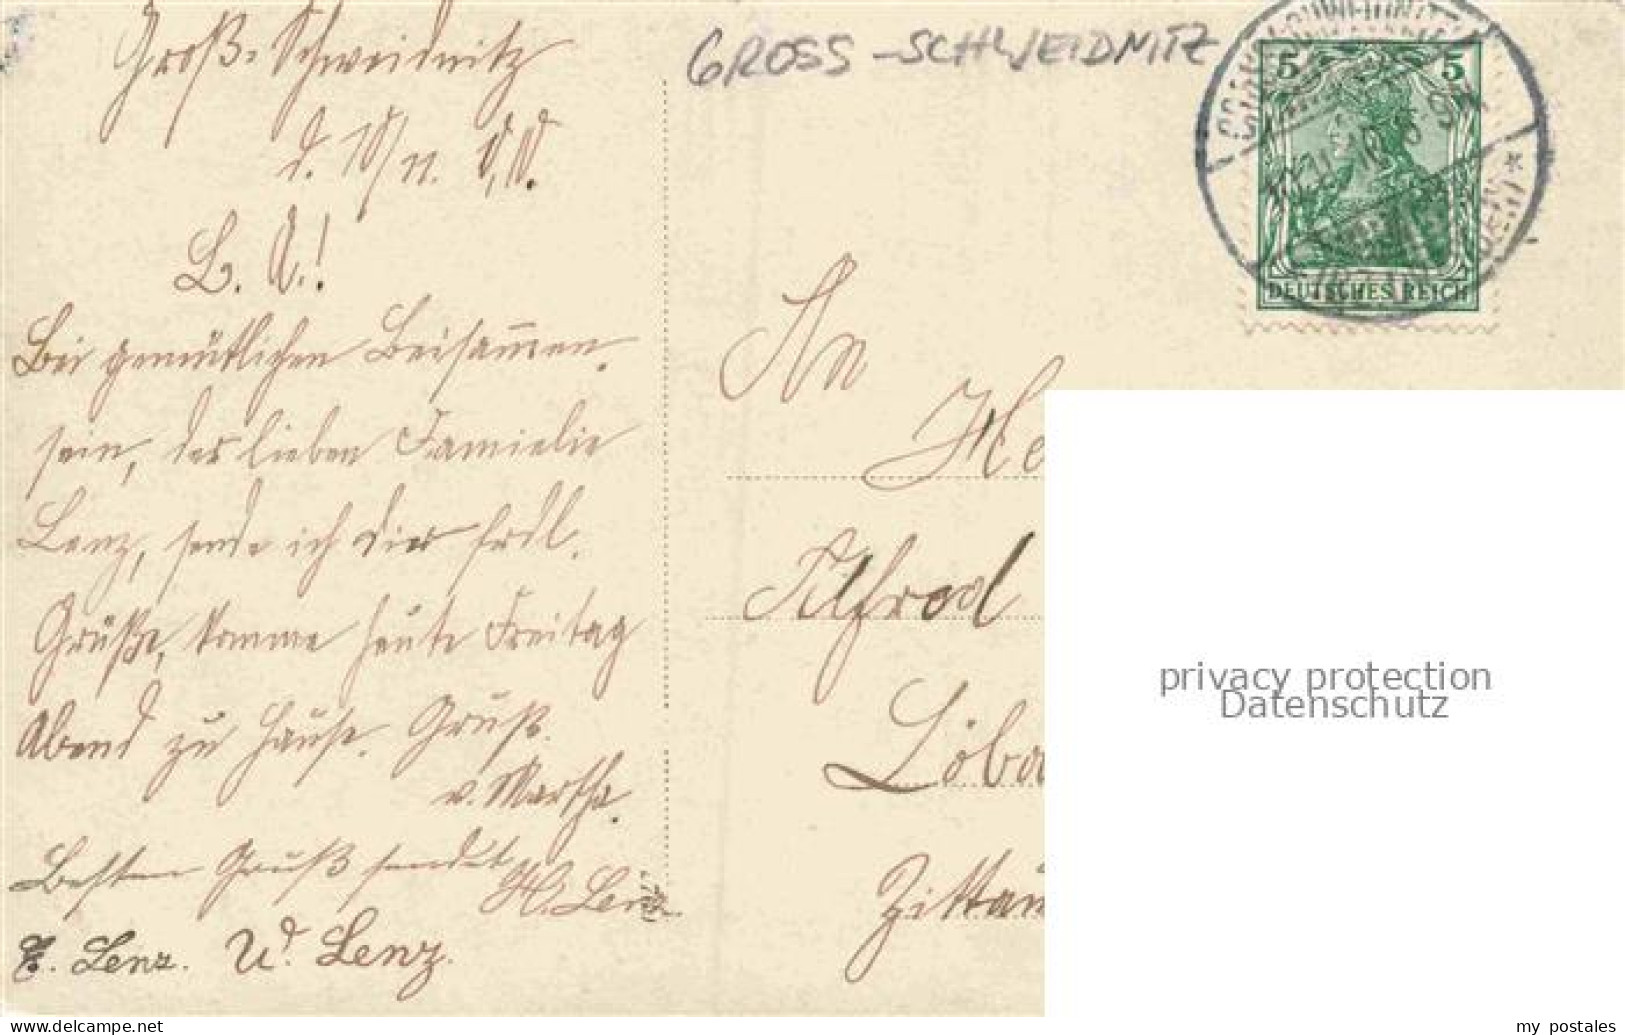 Groß-Schweidnitz
d. 10/11.
L. A.!
Bei gemütlichen Beisam̅en.
sein, der lieben Familie
Lenz, sende ich dir hrdl.
Grüße, komme heute Freitag
Abend zu Hause. Gruß.
v. Martha.
Besten Gruß sendet
H. Lenz
Lenz. U. Lenz.
GROSS-SCHWEIDNITZ
5 5
DEUTSCHES REICH
An
He
Alfred
Löba
Zittau
privacy protection
Datenschutz
www.delcampe.net
my_postales